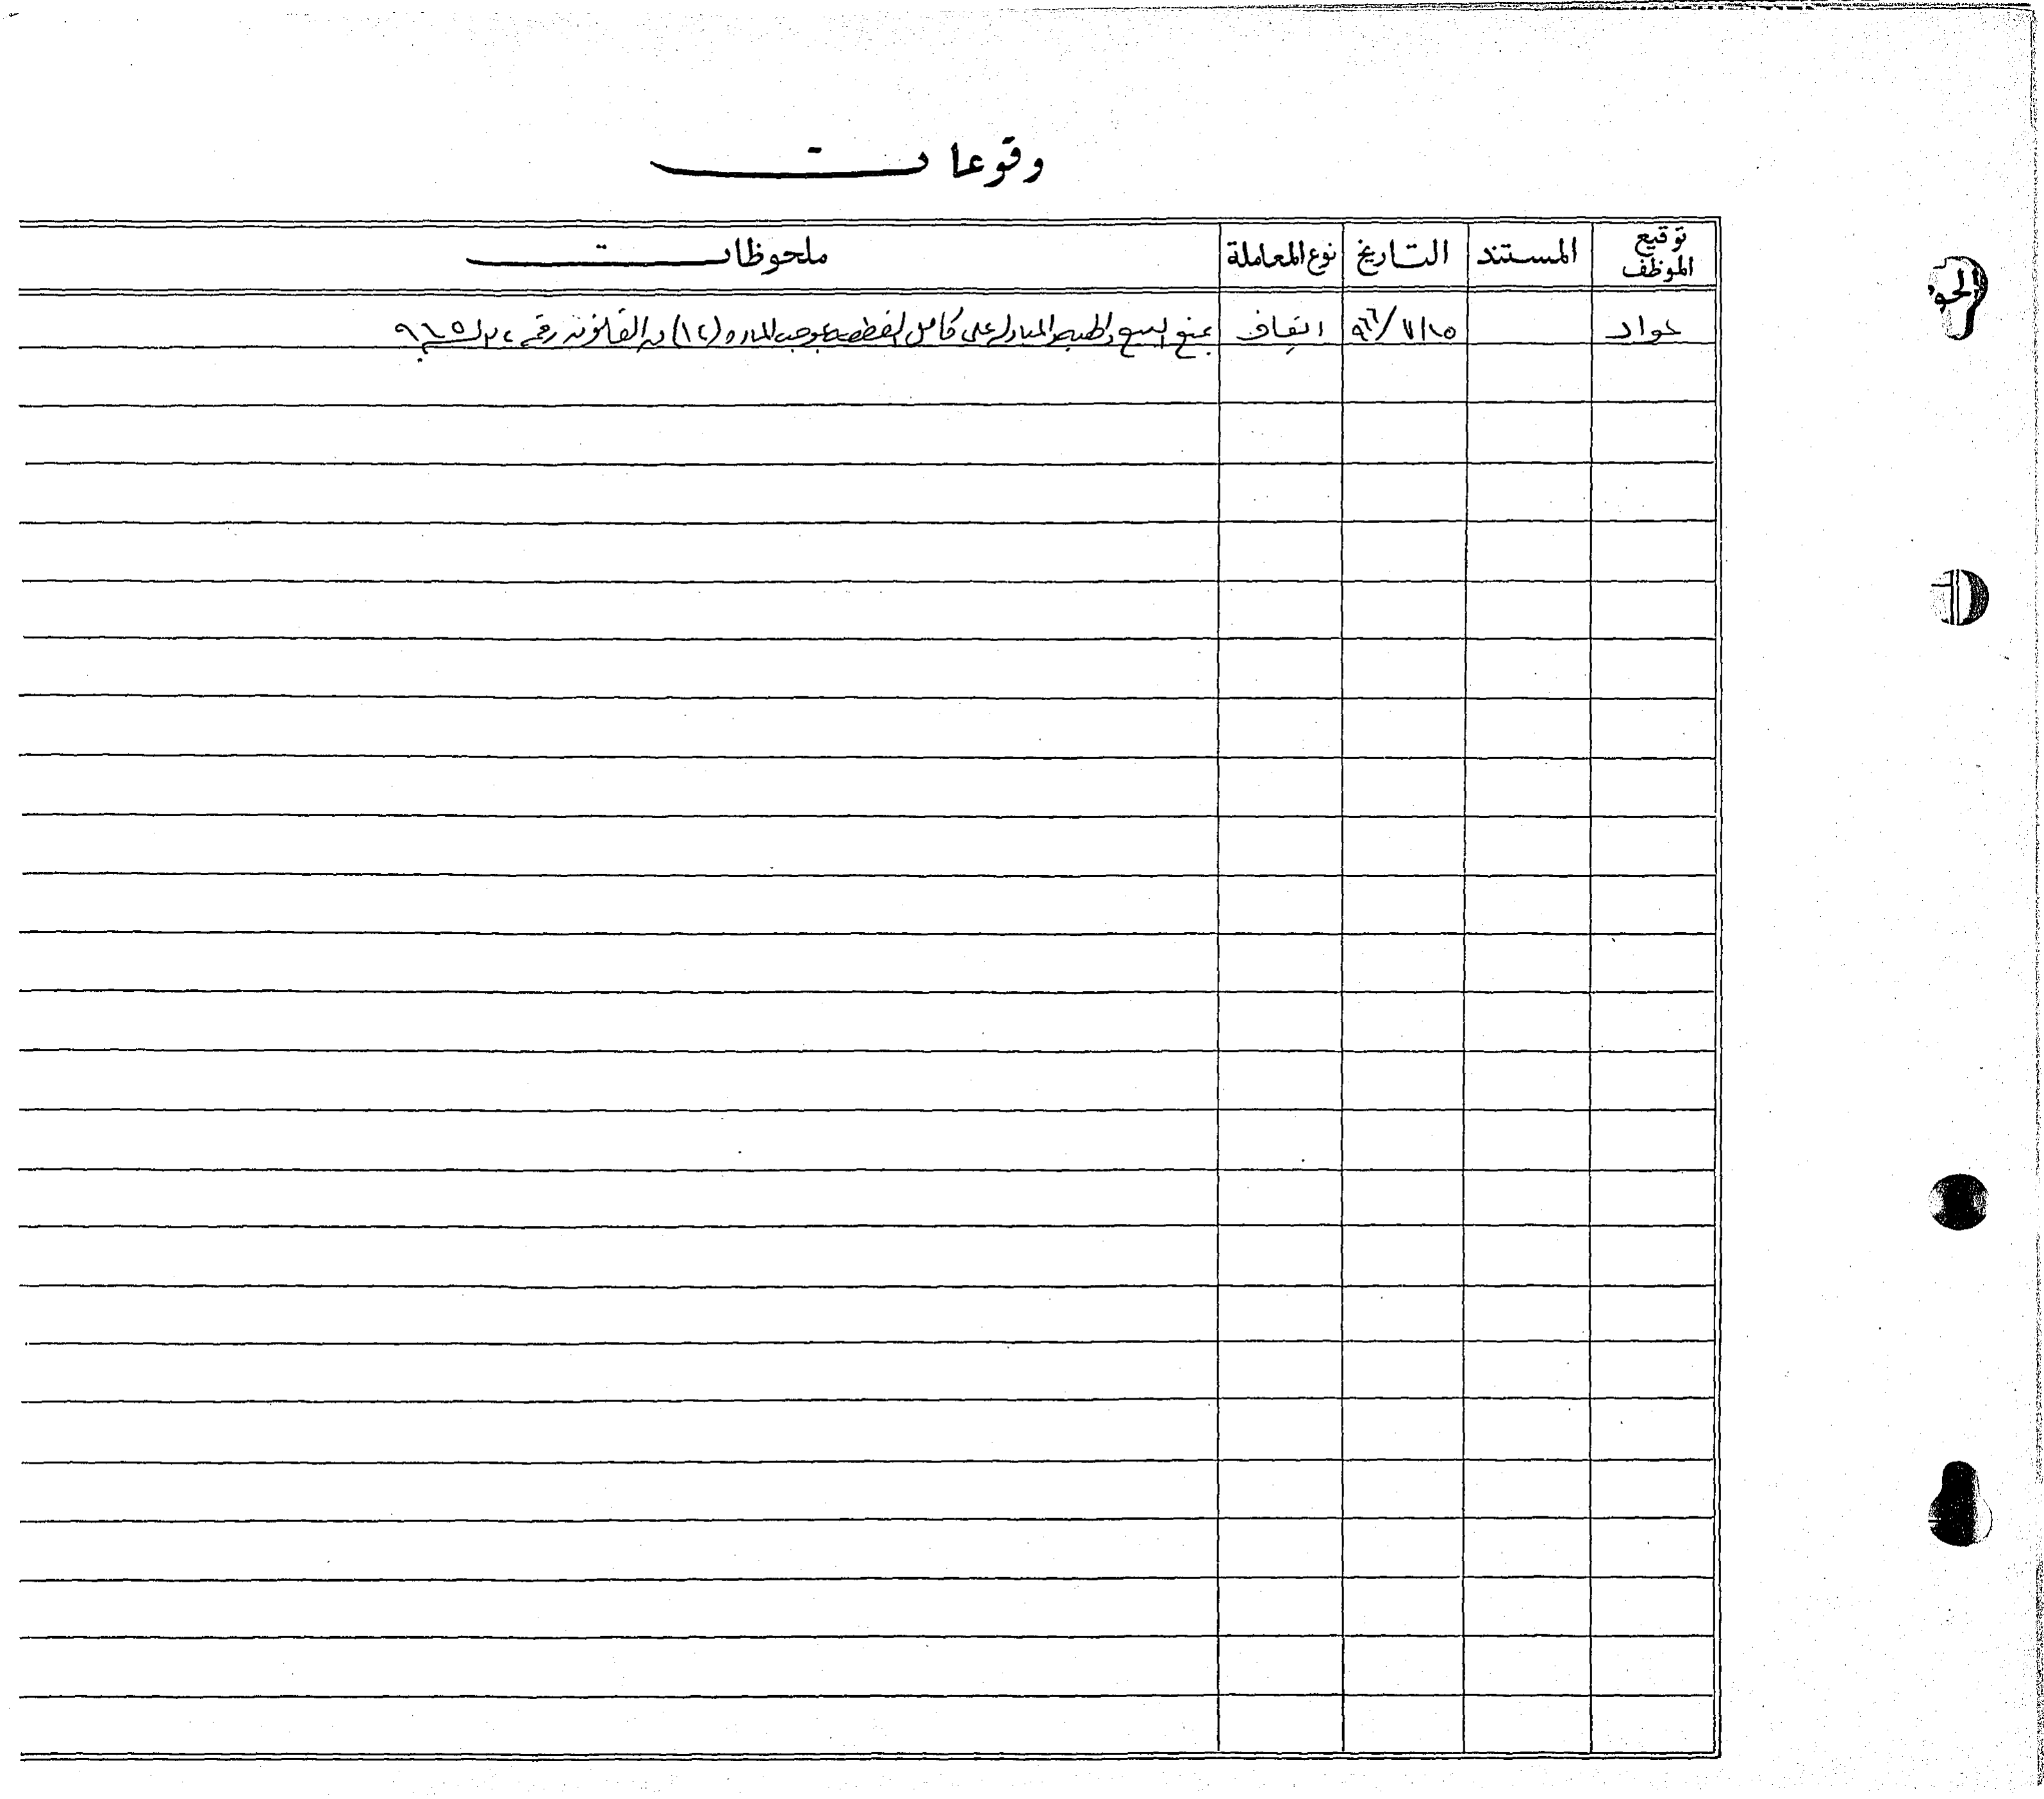 وقوعات
توقيع الموظف المستند التاريخ نوع المعاملة ملحوظات
عواد ايقاف يمنع البيع والهبة والمبادلة على كامل القطعة بموجب المادة (١٤) من القانون رقم لسنة ٩٦٥